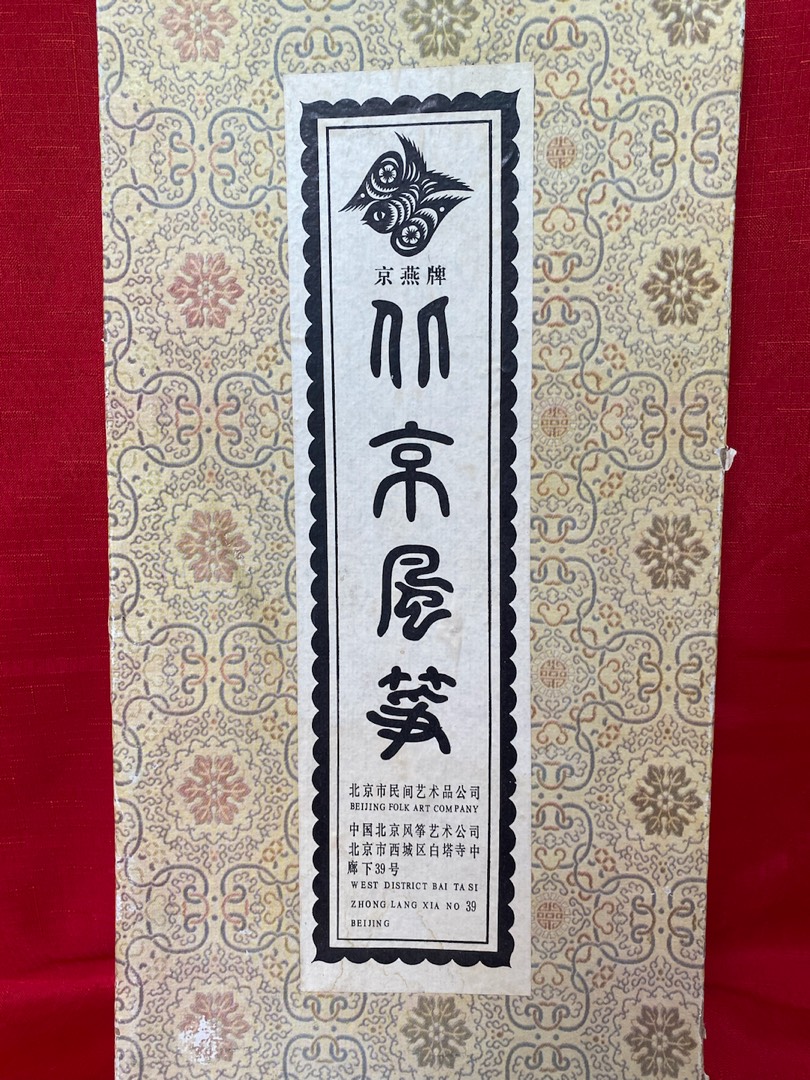 京燕牌
北京风筝
北京市民间艺术品公司
BEIJING FOLK ART COMPANY
中国北京风筝艺术公司
北京市西城区白塔寺中
廊下39号
WEST DISTRICT BAI TA SI
ZHONG LANG XIA NO 39
BEIJING